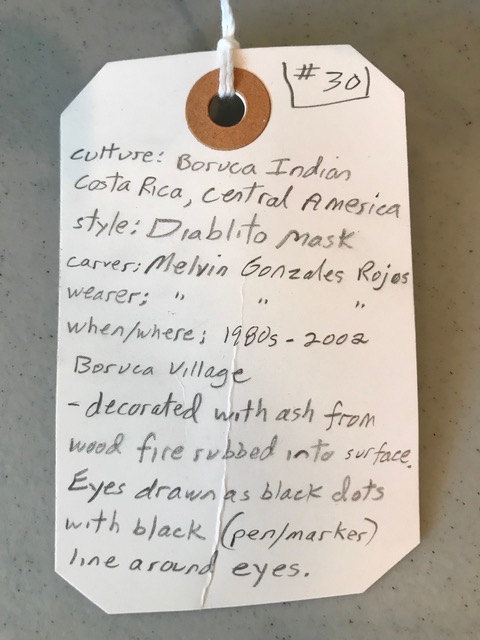 #30
culture: Boruca Indian
Costa Rica, Central America
style: Diablito Mask
carver: Melvin Gonzales Rojos
wearer: " " "
when/where: 1980s - 2002
Boruca Village
- decorated with ash from
wood fire rubbed into surface.
Eyes drawn as black dots
with black (pen/marker)
line around eyes.